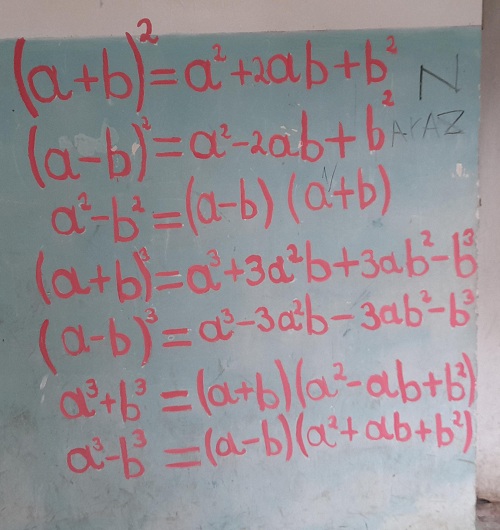 (a+b)² = a²+2ab+b²
N
(a-b)² = a²-2ab+b²
ArAZ
a²-b² = (a-b) (a+b)
N
(a+b)³ = a³+3a²b+3ab²-b³
(a-b)³ = a³-3a²b-3ab²-b³
a³+b³ = (a+b)(a²-ab+b²)
a³-b³ = (a-b)(a²+ab+b²)